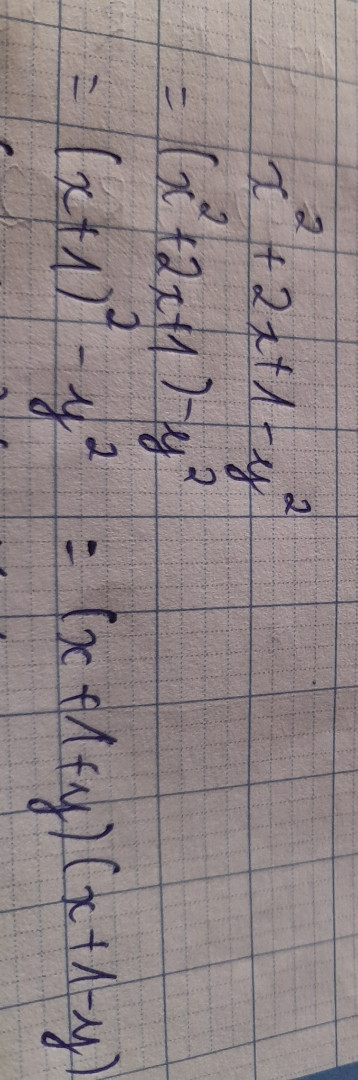 x² + 2x + 1 - y²
= (x² + 2x + 1) - y²
= (x + 1)² - y² = (x + 1 + y) (x + 1 - y)